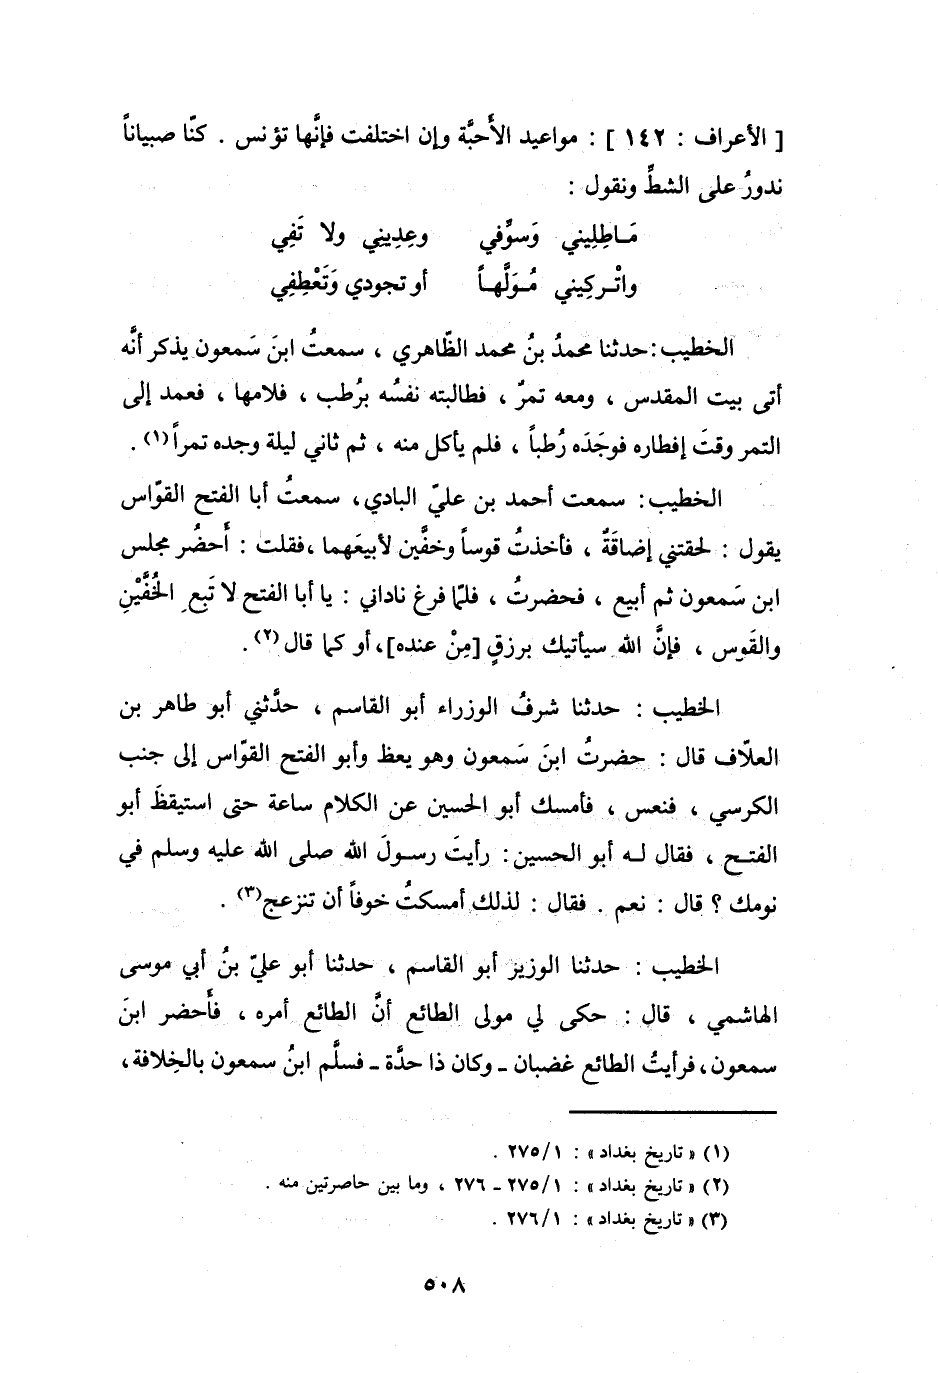 [ الأعراف : ١٤٢ ] : مواعيد الأَحبَّة وإن اختلفت فإنَّها تؤنس . كنّا صبياناً
ندورُ على الشطِّ ونقول :
مَـاطِلِيني وَسوِّفي وعِدِيني ولا تَفِي
واتْـركِيني مُـوَلَّهـاً أو تجودي وَتَعْطِفِي
الخطيب : حدثنا محمدُ بنُ محمد الظّاهري ، سمعتُ ابنَ سَمعون يذكر أنَّه
أتى بيت المقدس ، ومعه تمرٌ ، فطالبته نفسُه برُطب ، فلامها ، فعمد إلى
التمر وقتَ إفطاره فوجَدَه رُطباً ، فلم يأكل منه ، ثم ثاني ليلة وجده تمراً(١) .
الخطيب : سمعت أحمد بن عليّ البادي، سمعتُ أبا الفتح القوّاس
يقول : لحقتني إضاقَةٌ ، فأخذتُ قوساً وخفَّين لأبيعَهما ،فقلت : أَحضُر مجلس
ابن سَمعون ثم أبيع ، فحضرتُ ، فلمّا فرغ ناداني : يا أبا الفتح لا تَبع ِ الخُفَّيْنِ
والقَوس ، فإنَّ الله سيأتيك برزقٍ [مِنْ عنده]، أو كما قال(٢) .
الخطيب : حدثنا شرفُ الوزراء أبو القاسم ، حدَّثني أبو طاهر بن
العلّاف قال : حضرتُ ابنَ سَمعون وهو يعظ وأبو الفتح القوّاس إلى جنب
الكرسي ، فنعس ، فأمسك أبو الحسين عن الكلام ساعة حتى استيقظَ أبو
الفتـح ، فقال لـه أبو الحسين : رأيتَ رسـولَ الله صلى الله عليه وسلم في
نومك ؟ قال : نعم . فقال : لذلك أمسكتُ خوفاً أن تنزعج(٣) .
الخطيب : حدثنا الوزير أبو القاسم ، حدثنا أبو عليّ بنُ أبي موسى
الهاشمي ، قال : حكى لي مولى الطائع أنَّ الطائع أمره ، فأَحضر ابنَ
سمعون، فرأيتُ الطائع غضبان ـ وكان ذا حدَّة ـ فسلَّم ابنُ سمعون بالخِلافة،
(١) « تاريخ بغداد » : ٢٧٥/١ .
(٢) « تاريخ بغداد » : ٢٧٥/١ ـ ٢٧٦ ، وما بين حاصرتين منه .
(٣) « تاريخ بغداد » : ٢٧٦/١ .
٥٠٨